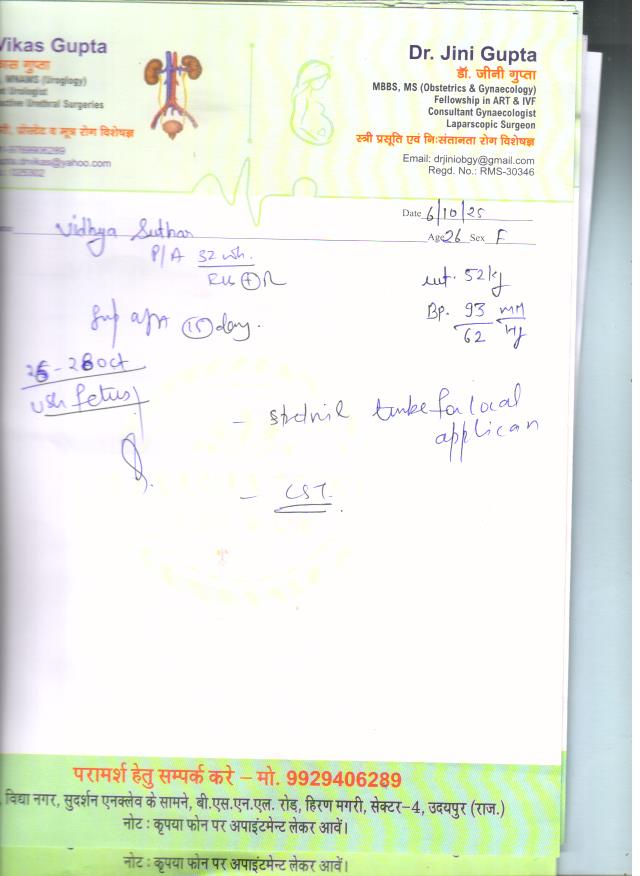 Vikas Gupta
ास गुप्ता
MNAMS (Uroglogy)
t Urologist
ctive Urethral Surgeries
ी, प्रोस्टेट व मूत्र रोग विशेषज्ञ
9769906289
upta.drvikas@yahoo.com
025302
Dr. Jini Gupta
डॉ. जीनी गुप्ता
MBBS, MS (Obstetrics & Gynaecology)
Fellowship in ART & IVF
Consultant Gynaecologist
Laparscopic Surgeon
स्त्री प्रसूति एवं निःसंतानता रोग विशेषज्ञ
Email: drjiniobgy@gmail.com
Regd. No.: RMS-30346
Date 6/10/25
Vidhya Suthar
Age 26 Sex F
P/A 32 wk.
wt. 52kg
Bp. 93/62 MM/Hg
15 day.
26-28 Oct
USG fetus
tube for local
applican
- CST.
परामर्श हेतु सम्पर्क करे – मो. 9929406289
विद्या नगर, सुदर्शन एनक्लेव के सामने, बी.एस.एन.एल. रोड, हिरण मगरी, सेक्टर-4, उदयपुर (राज.)
नोट : कृपया फोन पर अपाइंटमेन्ट लेकर आवें।
नोट : कृपया फोन पर अपाइंटमेन्ट लेकर आवें।